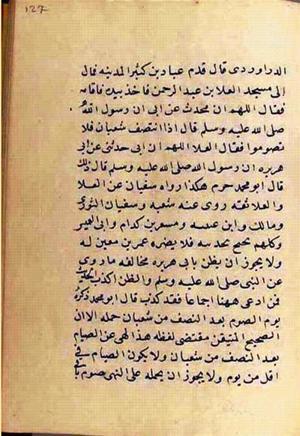 ١٢٧
الدراوردى قال قدم عباد بن كثير المدينه فمال
الى مسجد العلا بن عبد الرحمن فاخذ بيده فاقامه
فقال اللهم ان هذا يحدث عن ابى ان رسول الله
صلى الله عليه وسلم قال اذا انتصف شعبان فلا
تصوموا فقال العلا اللهم ان ابى حدثنى عن ابى
هريره ان رسول الله صلى الله عليه وسلم قال ذلك
قال ابو محمد حزم هكذا رواه سفيان عن العلا
والعلا ثقه روى عنه شعبه وسفيان الثورى
ومالك وابن عيينه ومسعر بن كدام وابى العميس
وكلهم يحتج بحديثه فلا يضره غمز بن معين له
ولا يجوز ان يظن بابى هريره مخالفه ما روى
عن النبى صلى الله عليه وسلم والظن اكذب الحديث
فمن ادعى ههنا اجماعا فقد كذب قال ابو محمد فكره
يوم الصوم بعد النصف من شعبان جمله الا ان
الصحيح المتيقن مقتضى لفظه هذا النهى عن الصيام
بعد النصف من شعبان ولا يكون الصيام فى
اقل من يوم ولا يجوز ان يحمله على النهى صوم